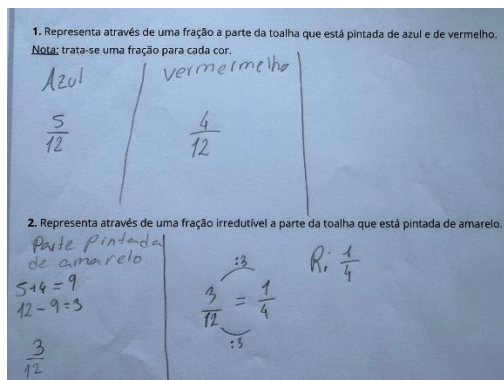 1. Representa através de uma fração a parte da toalha que está pintada de azul e de vermelho.
Nota: trata-se uma fração para cada cor.
Azul
vermermelho
5/12
4/12
2. Representa através de uma fração irredutível a parte da toalha que está pintada de amarelo.
Parte Pintada
de amarelo
5+4=9
12-9=3
3/12
:3
3/12 = 1/4
:3
R: 1/4